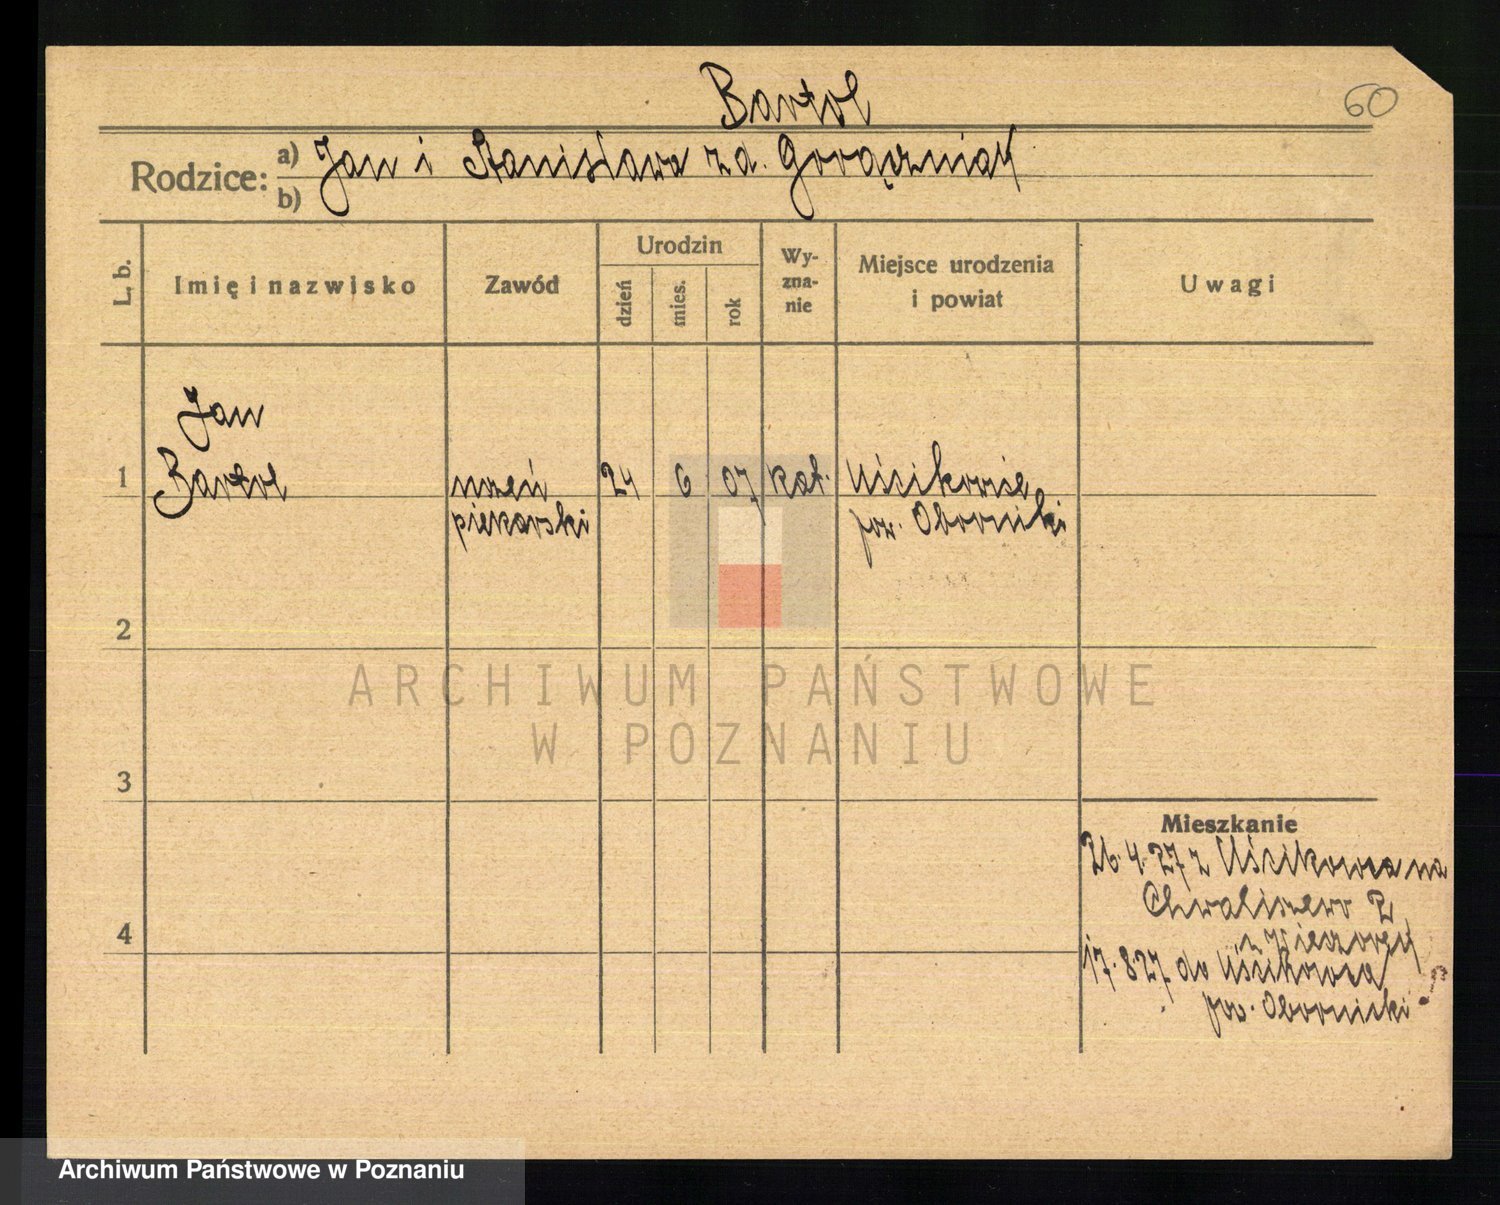 Bartol
60
Rodzice:
a) Jan i Stanisława zd. Gorączniak
b)
L. b.
Imię i nazwisko
Zawód
Urodzin
dzień
mies.
rok
Wy-
zna-
nie
Miejsce urodzenia
i powiat
Uwagi
Jan
1 Bartol
uczeń
piekarski
24 6 07 kat.
Uścikowie
pow. Oborniki
2
3
4
ARCHIWUM PAŃSTWOWE
W POZNANIU
Mieszkanie
26.4.27 z Uścikowca na
Chwaliszewo 2
z
17.8.27 do Uścikowca
pow. Obornicki
Archiwum Państwowe w Poznaniu